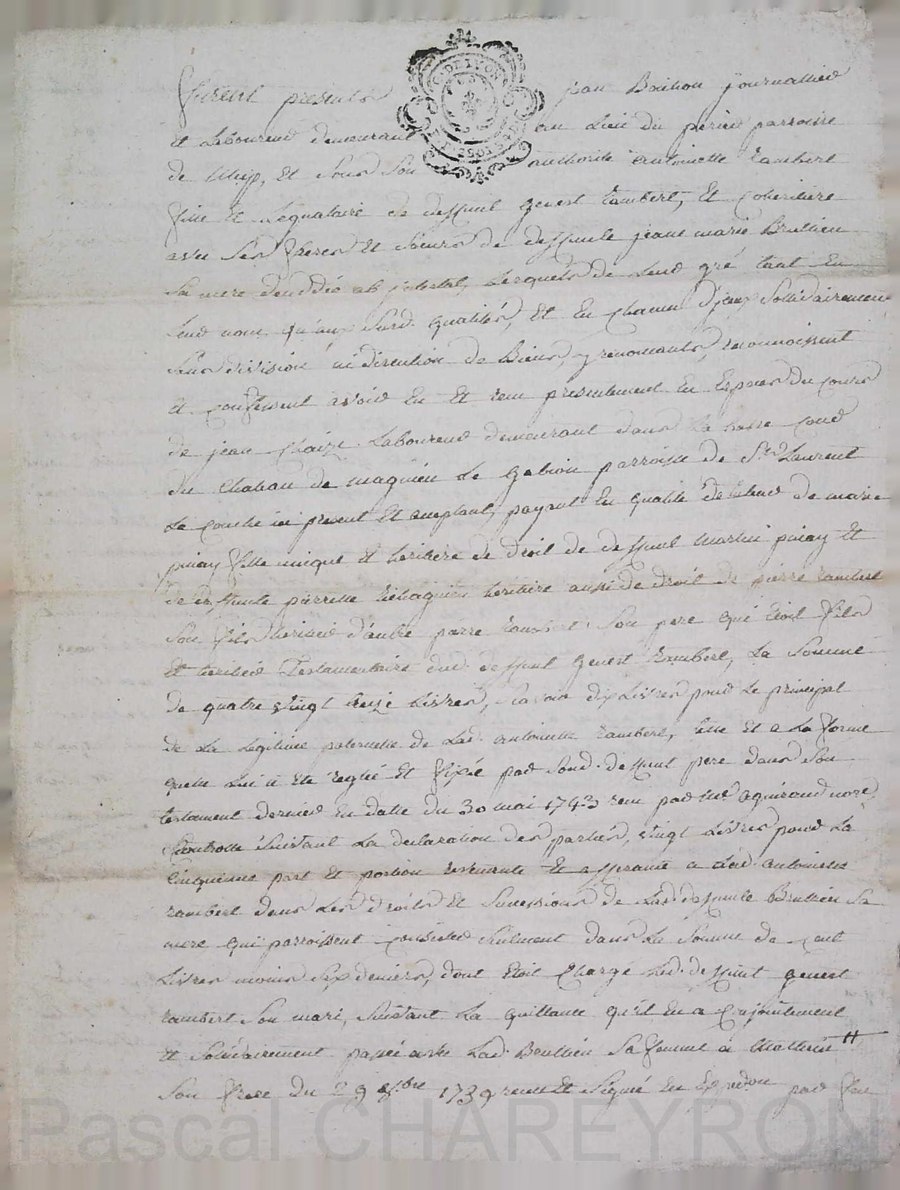 G. DE LYON
Furent presents jean Boution journallier
et Laboureur demeurant au Lieu du perier parroisse
de et Sous Son authorité antoinette rambert
fille et Legataire de deffunt genest rambert, et coheritiere
avec Ses freres et Soeurs de deffunte jeane marie Bruttien
Sa mere decedée ab jntestat, Lesquels de Leur gré tant en
Leur nom, qu'aux Susd. qualités, et en chacun d'jceux Sollidairement
Sans division ni discution de Biens, y renoncants, reconnoissent
et confessent avoir eu et receu presentement en Especes du cours
de jean chaize Laboureur demeurant dans La basse cour
du chateau de magnieu Le gabion parroisse de St. Laurent
La conche ici present et acceptant, payant en qualité de de marie
fille unique et heritiere de droit de deffunt Martin et
de deffunte pierrette heritiere aussi de droit de pierre rambert
Son fils heritier d'autre pierre rambert Son pere qui Etoit fils
et heritier Testamentaire dud. deffunt genest rambert, La Somme
de quatre vingt Livres, Savoir dix Livres pour Le principal
de La Legitime paternelle de Lad. antoinette rambert, telle et a La forme
quelle Lui a Eté reglée et fixée par Sond. deffunt pere dans Son
testament dernier en datte du 30 mai 1743 receu par Me. nore.
Suivant La declaration des parties, vingt Livres pour La
Cinquieme part et portion et a Lad. antoinette
rambert dans Les droits et Successions de Lad. deffunte Bruttien Sa
mere qui parroissent consister Seulment dans La Somme de cent
Livres moins Six deniers, dont Etoit chargé Led. deffunt genest
rambert Son mari, Suivant La quittance qu'il en a conjointement
et Solidairement passée avec Lad. Bruttien Sa femme à Mathieu
Son frere du 29 8bre 1739 receue et Signée en Expedon par feu
Pascal CHAREYRON